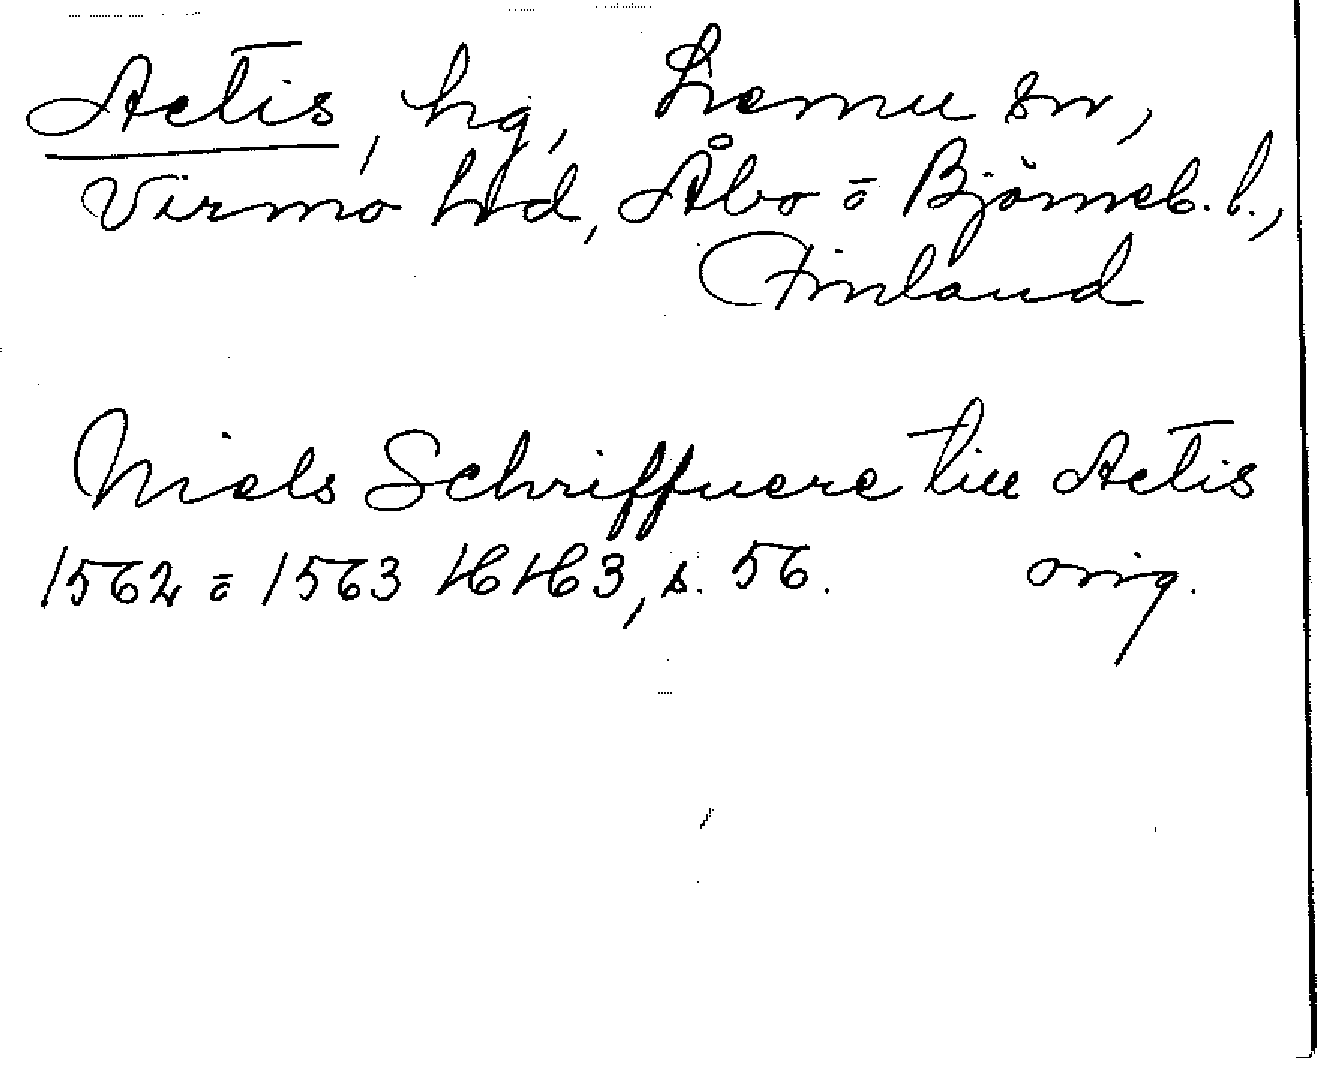 Actis, hg, Lemu sn,
Virmo hd, Åbo o Björneb. l.,
Finland
Niels Schriffuere till Actis
1562 o 1563 HH3, s. 56. orig.